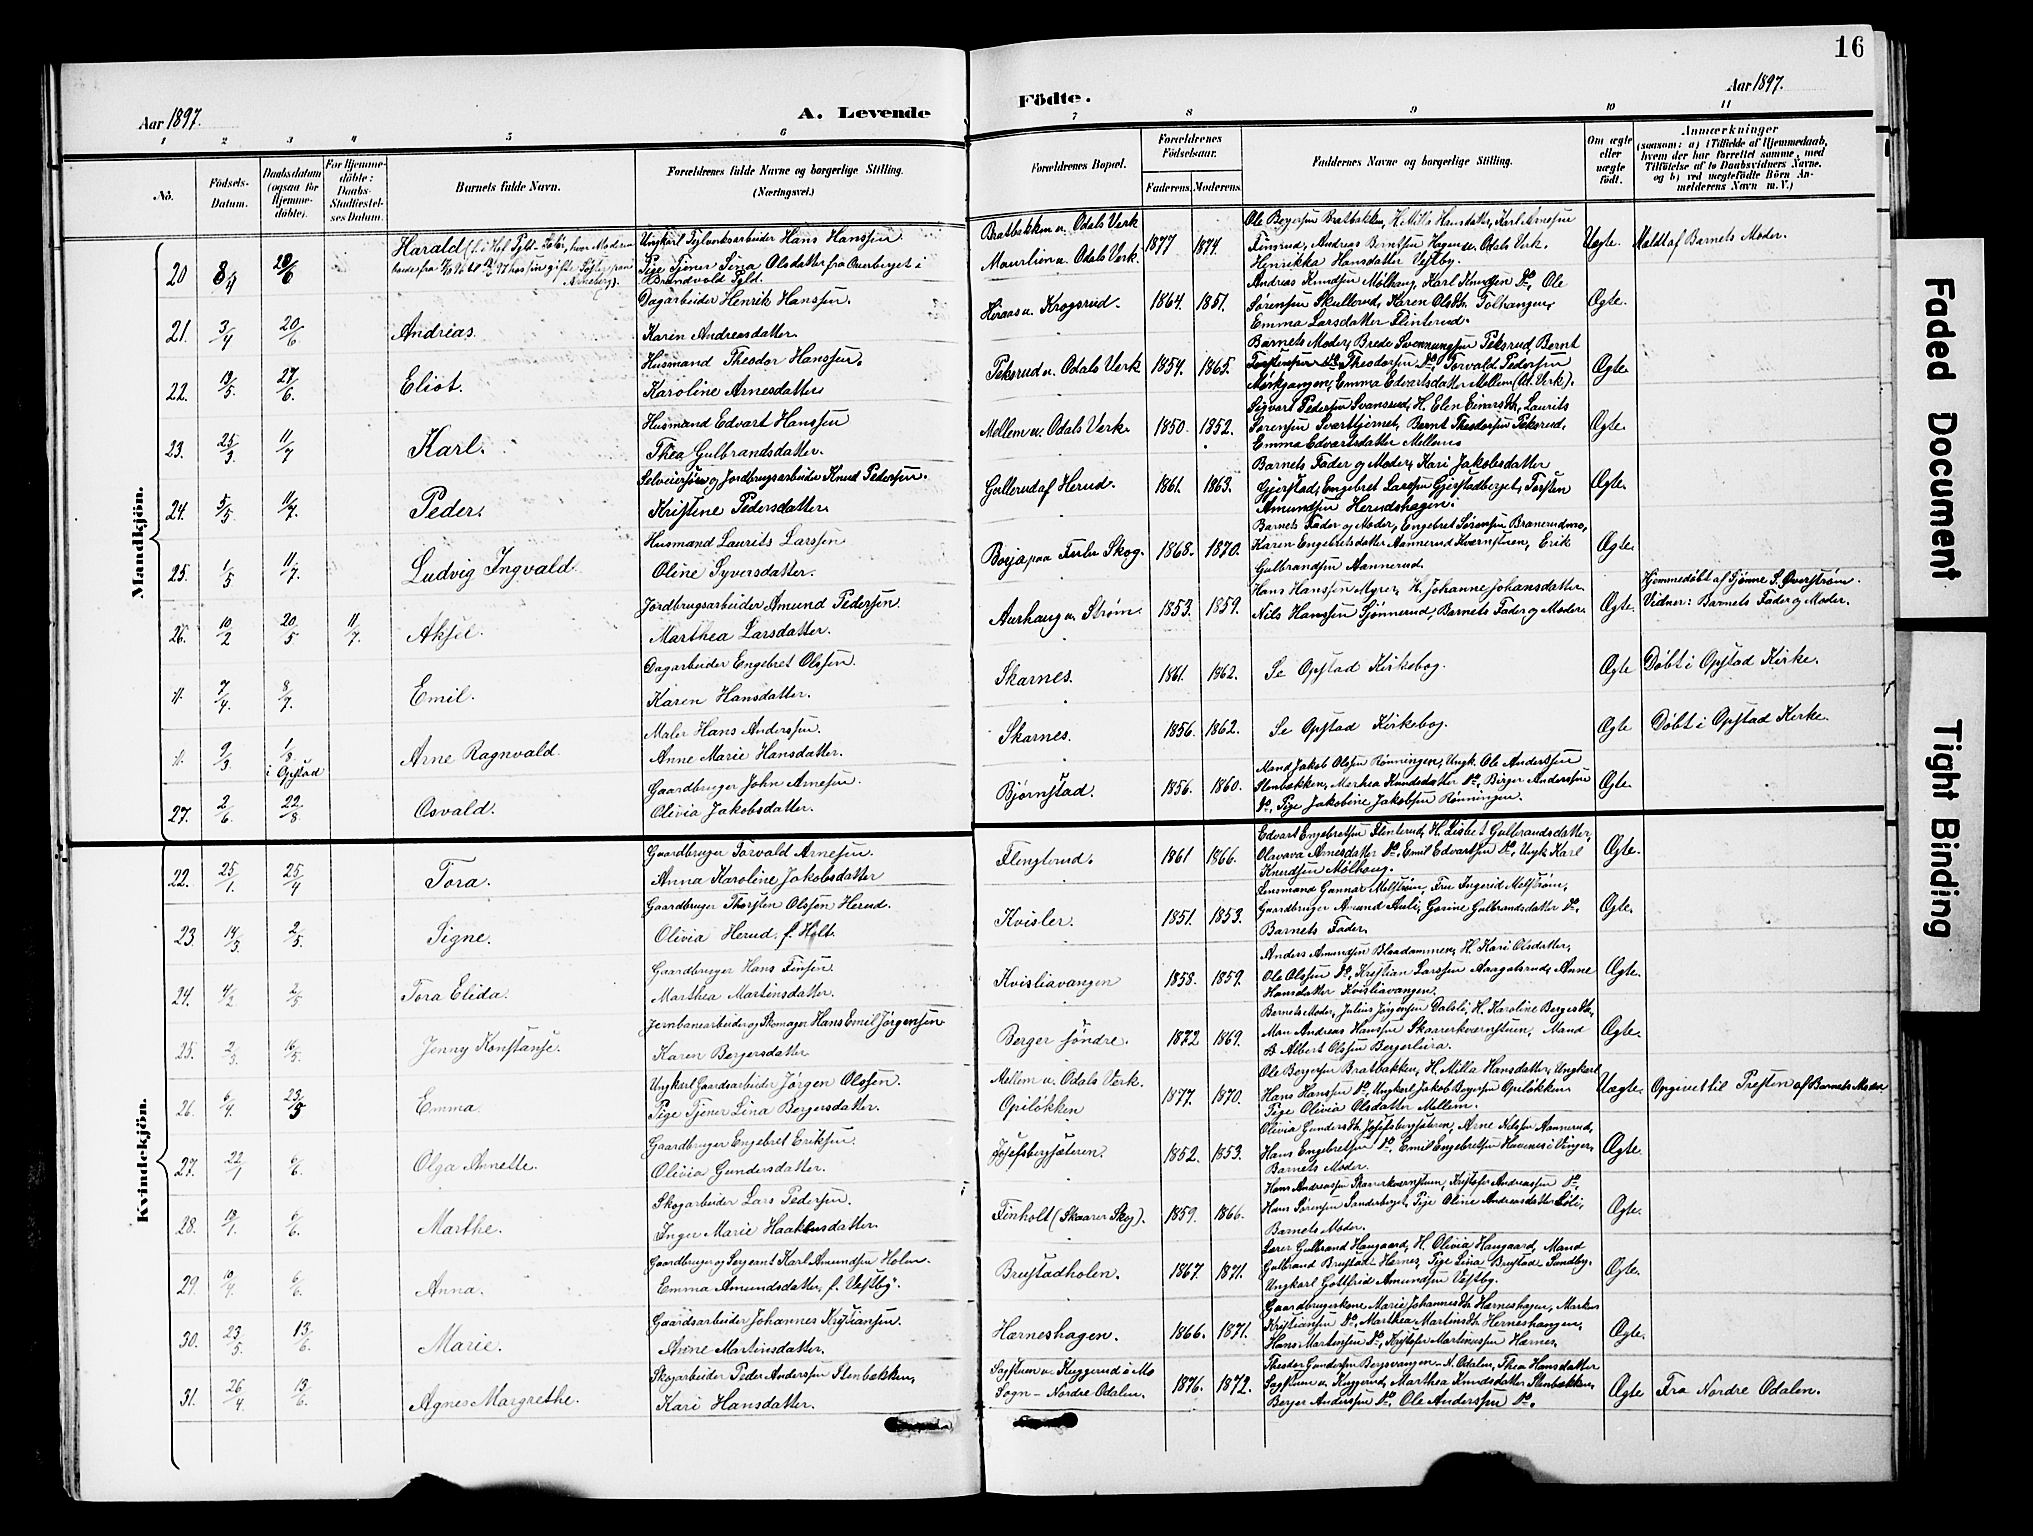 16
Aar 1897.
A. Levende
Födte.
Aar 1897.
1 2 3 4 5 6 7 8 9 10 11
No.
Födsels-Datum.
Daabsdatum (ogsaa för Hjemmedöbte).
For Hjemmedöbte: Daabs-Stadfæstelses Datum.
Barnets fulde Navn.
Forældrenes fulde Navne og borgerlige Stilling. (Næringsvei.)
Forældrenes Bopæl.
Forældrenes Födselsaar.
Faderens. Moderens.
Faddernes Navne og borgerlige Stilling.
Om ægte eller uægte födt.
Anmærkninger
(saasom: a) i Tilfælde af Hjemmedaab, hvem der har forrettet samme, med Tilföielse af to Daabsvidners Navne. og b) ved uægtefödte Börn Anmelderens Navn m. V.)
Mandkjön.
20 3/4 20/6 Harald Ungkarl Hans Hanssen Pige Tjener Lina Olsdatter fra Overberget i Brandvold Pgld. Bratbakken u. Odals Verk Maurlien u. Odals Verk. 1877 1874. Ole Bergersen Bratbakken, H. Milla Hansdatter, Karl Arnesen Finsrud, Andreas Berntsen Hagen u. Odals Verk. Henrikka Hansdatter Vestby. Uægte. Meldt af Barnets Moder.
21. 3/4 20/6 Andreas. Dagarbeider Henrik Hanssen. Karen Andreasdatter. Heraas u. Krogsrud. 1864 1851. Andreas Knudsen Mølhaug, Karl Knudsen Do, Ole Sørensen Skullerud, Karen Olsdtr. Tolhangen, Emma Larsdatter Flinterud. Ægte.
22. 19/5 27/6. Eliot. Husmand Theodor Hanssen. Karoline Arnesdatter Peksrud u. Odals Verk 1854. 1865. Barnets Moder, Brede Svennungsen Peksrud, Bernt Theodorsen Do, Torvald Pedersen Mørkgangen, Emma Edvartsdatter Mellem (Od. Verk). Ægte.
23. 25/3 11/7 Karl. Husmand Edvart Hanssen Thea Gulbrandsdatter. Mellem u. Odals Verk. 1850. 1852. Sigvart Pedersen Svansrud, H. Elen Einarsdtr., Laurits Sørensen Svarttjernet, Bernt Theodorsen Peksrud, Emma Edvartsdatter Mellem. Ægte.
24. 5/5 11/7. Peder. Selveiersøn og Jordbrugsarbeider Knud Pedersen. Kristine Pedersdatter. Gullerud af Herud. 1861. 1863. Barnets Fader og Moder, Kari Jakobsdatter Gjerstad, Engebret Larsen Gjerstadberget, Torsten Amundsen Herudshagen. Ægte.
25. 1/5 11/7. Ludvig Ingvald. Husmand Laurits Larssen Oline Syversdatter. Borja paa Fulu Skog. 1868. 1870. Barnets Fader og Moder, Engebret Sørensen Branerudmo, Karen Engebretsdatter Aannerud Kværnstuen, Erik Gulbrandsen Aannerud. Ægte.
26. 10/2 20/5 11/7. Aksel. Jordbrugsarbeider Amund Pedersen. Marthea Larsdatter. Aurhaug u. Strøm. 1853. 1859. Hans Hanssen Myrer, H. Johanne Johansdatter. Nils Hanssen Sjønnerud, Barnets Fader og Moder. Ægte. Hjemmedøbt af Sjønne S. Overstrøm. Vidner: Barnets Fader og Moder.
". 7/4. 8/7. Emil. Dagarbeider Engebret Olssen. Karen Hansdatter. Skarnes. 1861. 1862. Se Opstad Kirkebog. Ægte Døbt i Opstad Kirke.
". 9/3. 1/8 i Opstad Arne Ragnvald. Maler Hans Anderssen. Anne Marie Hansdatter. Skarnes. 1856. 1862. Se Opstad Kirkebog. Ægte Døbt i Opstad Kirke.
27. 2/6. 22/8 Osvald. Gaardbruger John Arnesen. Olivia Jakobsdatter. Bjørnstad. 1856. 1860. Mand Jakob Olssen Rønningen, Ungk. Ole Anderssen Stenbakken, Marthea Knudsdatter Do, Birger Anderssen Do, Pige Jakobine Jakobsen Rønningen. Ægte.
Kvindekjön.
22. 25/1. 25/4 Tora. Gaardbruger Torvald Arnesen. Anna Karoline Jakobsdatter Flengterud. 1861 1866. Edvart Engebretsen Flinterud, H. Lisbet Gulbrandsdatter, Olavava Arnesdatter Do, Emil Edvartsen Do, Ungk. Karl Knudsen Mølhaug. Ægte.
23. 14/3 2/5. Signe. Gaardbruger Thorsten Olssen Herud. Olivia Herud. f. Holt. Kvisler. 1851. 1853. Lensmand Gunnar Melstrøm, Fru Ingerid Melstrøm, Gaardbruger Amund Auli, Gorine Gulbrandsdatter Do. Barnets Fader. Ægte.
24. 4/2 2/5 Tora Elida. Gaardbruger Hans Finsen. Marthea Martinsdatter. Kvisliavangen 1858. 1859. Anders Amundsen Blaadammen, H. Kari Olsdatter, Ole Olssen Do, Kristian Larssen Aaagaatsrud, Anne Hansdatter Kvisliavangen. Ægte.
25. 2/3. 16/5. Jenny Konstanse. Jernbanearbeider og Skomager Hans Emil Jørgensen Karen Bergersdatter Berger søndre. 1872 1869. Barnets Moder, Julius Jørgensen Dalsli, H. Karoline Bergersdtr., Mand Andreas Hanssen Skaarerkværnstuen, Mand B. Albert Olssen Bergerleira. Ægte.
26. 6/4. 23/5 Emma. Ungkarl Gaardsarbeider Jørgen Olssen. Pige Tjener Lina Bergersdatter. Mellem u. Odals Verk. Opiløkken 1877. 1870. Ole Bergersen Bratbakken, H. Milla Hansdatter, Ungkarl Hans Hanssen Do, Ungkarl Jakob Bergersen Opiløkken, Pige Olivia Olsdatter Mellem. Uægte. Opgivet til Presten af Barnets Moder.
27. 22/1 6/6. Olga Annette. Gaardbruger Engebret Eriksen. Olivia Gundersdatter. Josefsbergsæteren. 1852. 1853. Olivia Gundersdtr. Josefsbergsæteren, Arne Nilssen Aannerud, Hans Engebretsen Do, Emil Engebretsen Havenes i Vinger, Barnets Moder. Ægte.
28. 19/1. 6/6. Marthe. Skogarbeider Lars Pedersen. Inger Marie Haakensdatter. Finholt (Skaarer Skog). 1859. 1866. Hans Andreassen Skaarerkværnstuen, Kristofer Andreassen Do, Hans Sørensen Sanderberget, Pige Oline Andreasdatter Løli, Barnets Moder. Ægte.
29. 10/4. 6/6. Anna. Gaardbruger og Sergeant Karl Amundsen Holm. Emma Amundsdatter, f. Vestby. Brustadholen. 1867. 1871. Lærer Gulbrand Haugaard, H. Olivia Haugaard, Mand Gulbrand Brustad Hernes, Pige Lina Brustad Sundby. Ungkarl Gottfrid Amundsen Vestby. Ægte.
30. 23/5. 13/6. Marie. Gaardsarbeider Johannes Kristiansen. Anne Martinsdatter. Hærneshagen. 1866. 1871. Gaardbrugerkone Marie Johannesdtr. Hærneshagen, Markus Kristiansen Do, Marthea Martinsdtr. Herneshaugen, Hans Martinsen Do, Kristofer Martinussen Hærnes. Ægte.
31. 26/4 13/6. Agnes Margrethe. Skogarbeider Peder Anderssen Stenbakken. Kari Hansdatter. Sagstuen u. Kuggerud i Mo Sogn - Nordre Odalen. 1876. 1872. Theodor Gundersen Bergsvangen - N. Odalen, Thea Hansdatter Sagstuen u. Kuggerud, Marthea Knudsdatter Stenbakken, Berger Anderssen Do, Ole Anderssen Do. Ægte Fra Nordre Odalen.
Faded Document
Tight Binding